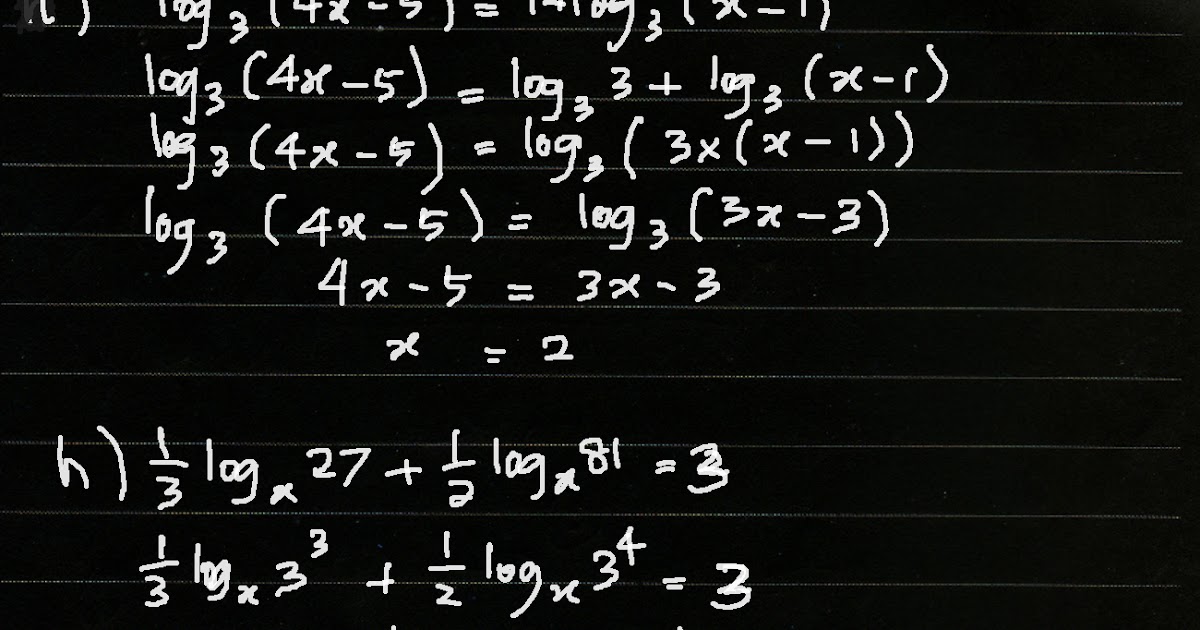 ) log₃(4x-5) = 1+log₃(x-1)
log₃(4x-5) = log₃3 + log₃(x-1)
log₃(4x-5) = log₃(3×(x-1))
log₃(4x-5) = log₃(3x-3)
4x-5 = 3x-3
x = 2
h) 1/3 logₓ27 + 1/2 logₓ81 = 3
1/3 logₓ3³ + 1/2 logₓ3⁴ = 3